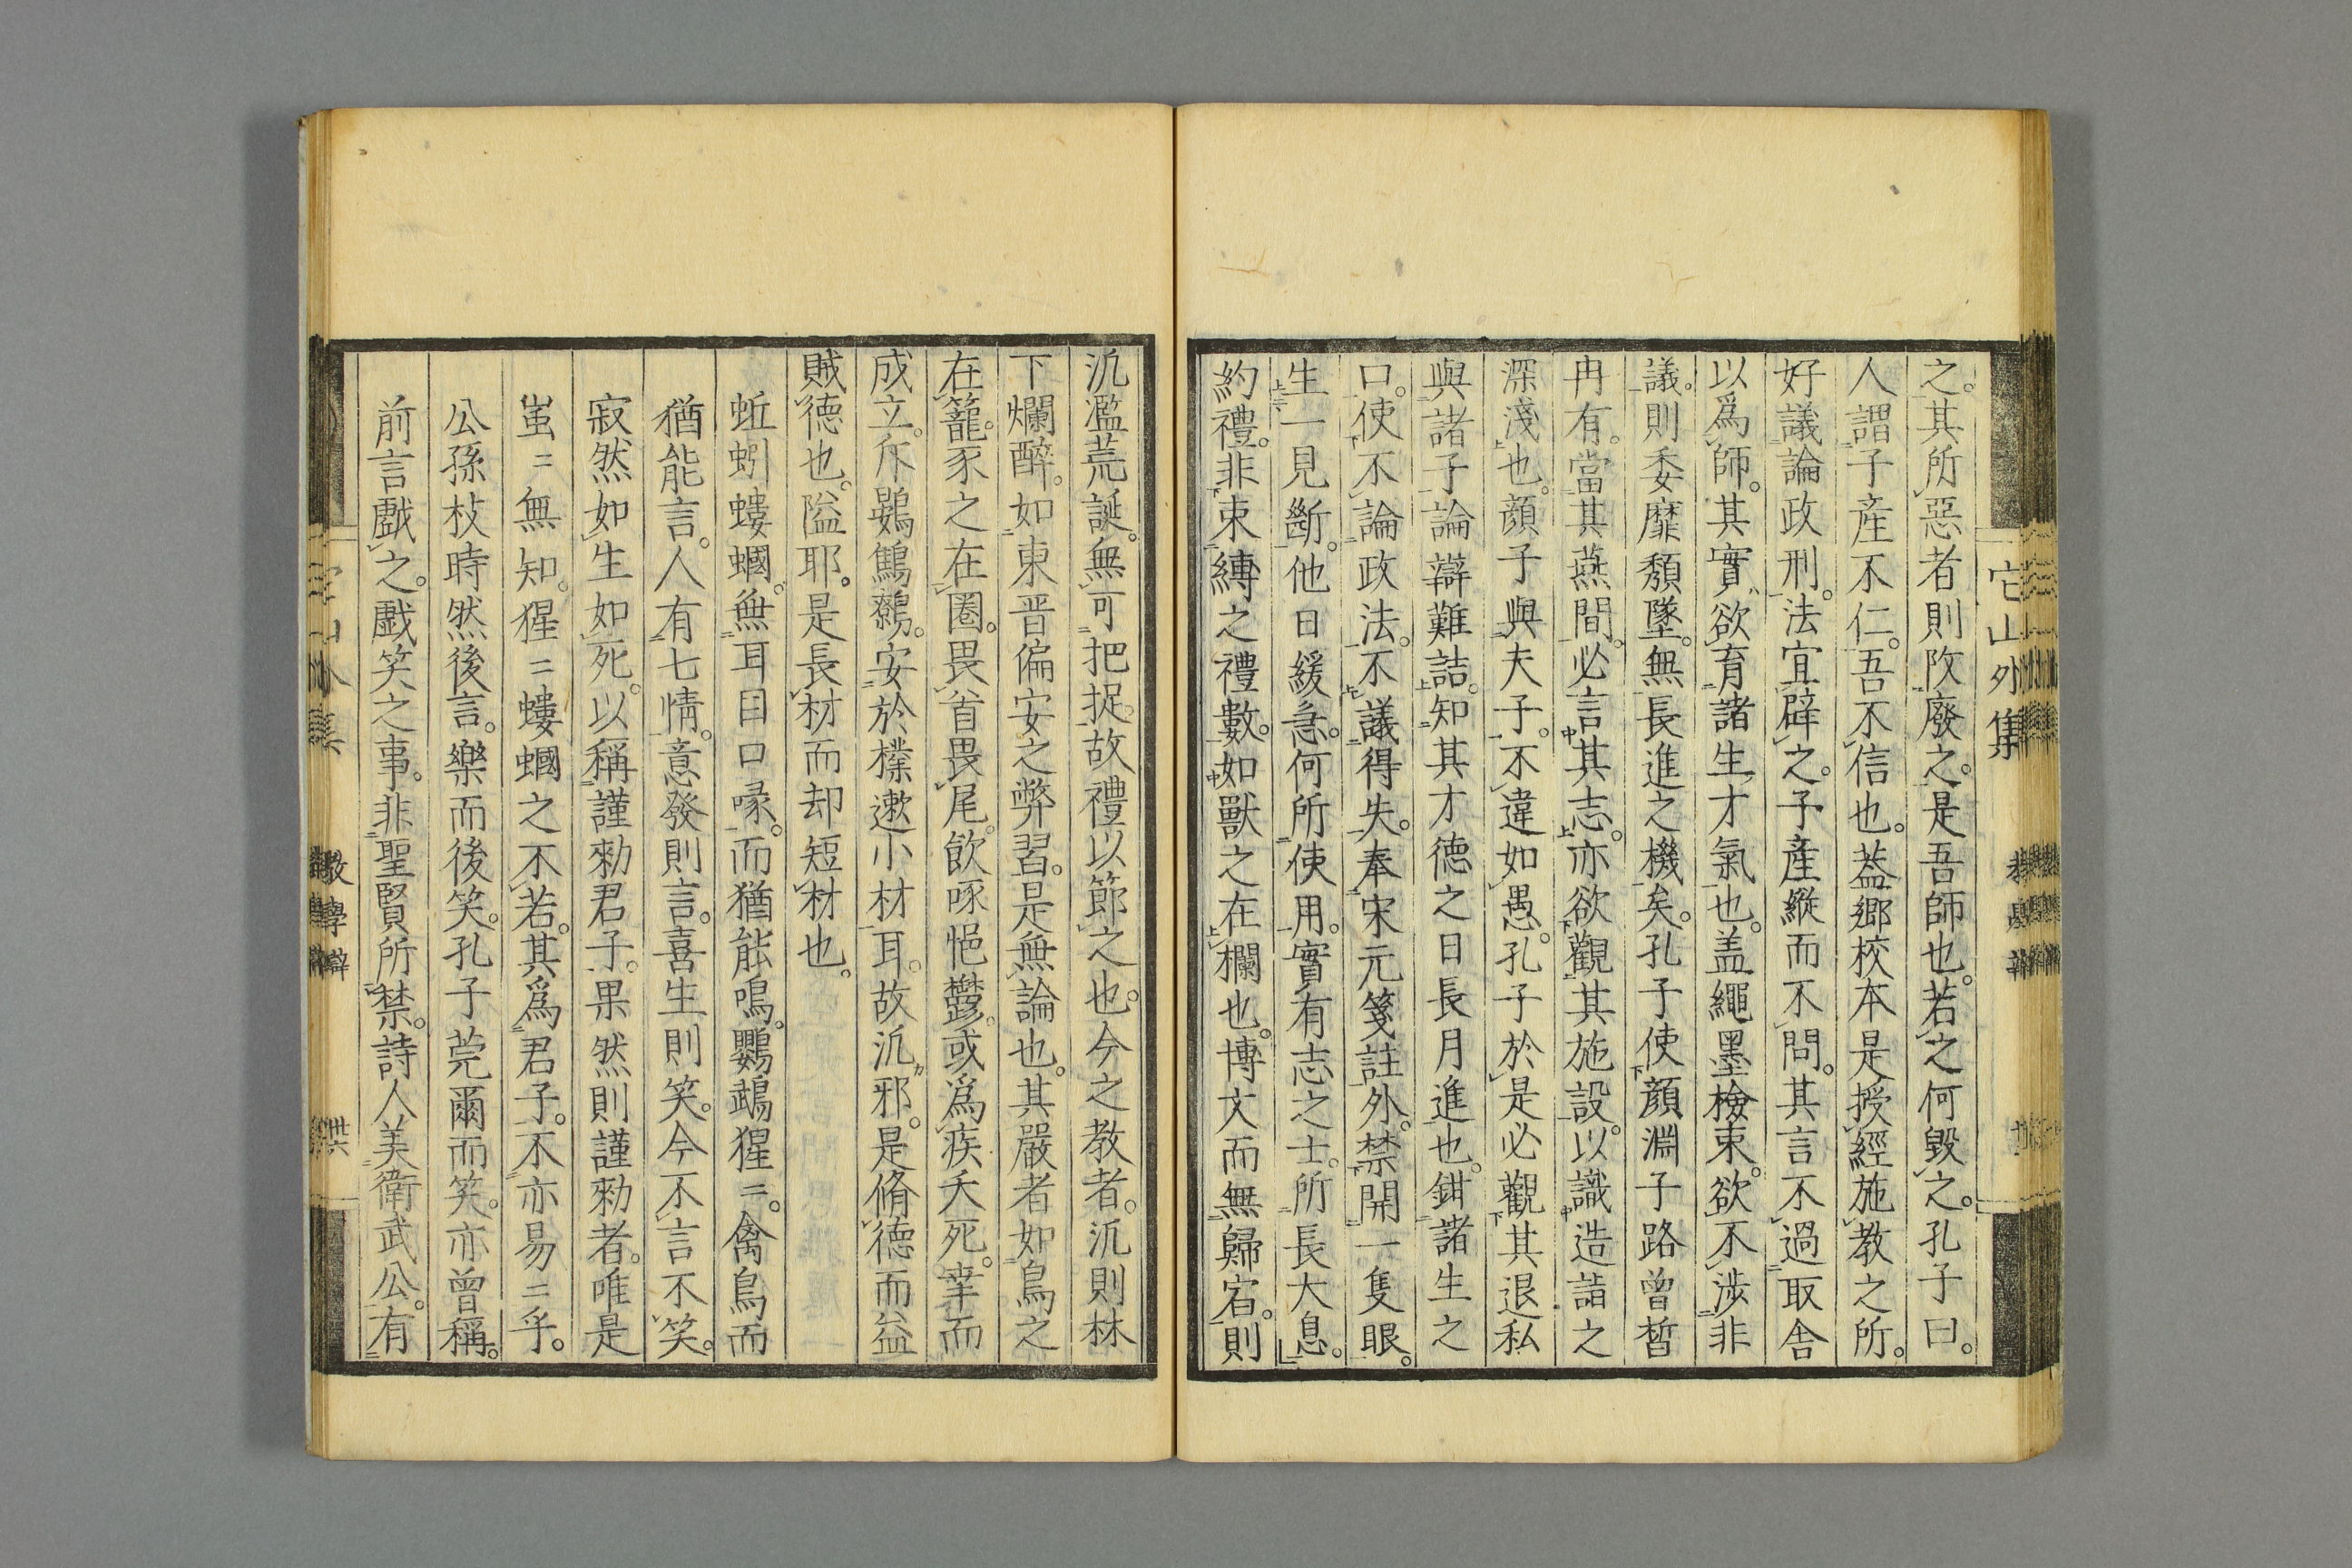 之。其所惡者則改廢之。是吾師也。若之何毀之。孔子曰。
人謂子產不仁。吾不信也。蓋鄉校本是授經施教之所。
好議論政刑。法宜辟之。子產縱而不問。其言不過取舍
以爲師。其實欲育諸生才氣也。盖繩墨檢束。欲不涉非
議。則委靡頽墜。無長進之機矣。孔子使顏淵子路曾晳
冉有。當其燕間。必言其志。亦欲觀其施設。以識造詣之
深淺也。顏子與夫子。不違如愚。孔子於是必觀其退私
與諸子論辯難詰。知其才德之日長月進也。鉗諸生之
口。使不論政法。不議得失。奉宋元箋註外。禁開一隻眼。
生一見斷。他日緩急。何所使用。實有志之士。所長大息。
約禮。非束縛之禮數。如獸之在欄也。博文而無歸宿。則
它山外集
汎濫荒誕。無可把捉。故禮以節之也。今之教者。汎則林
下爛醉。如東晋偏安之弊習。是無論也。其嚴者如鳥之
在籠。豕之在圈。畏首畏尾。飲啄悒鬱。或爲疾夭死。幸而
成立。斥鷃鷦鷯。安於樸遬小材耳。故汎邪。是脩德而益
賊德也。隘耶。是長材而却短材也。
蚯蚓螻蟈。無耳目口喙。而猶能鳴。鸚鵡猩〻。禽鳥而
猶能言。人有七情。意發則言。喜生則笑。今不言不笑。
寂然如生如死。以稱謹勑君子。果然則謹勑者。唯是
蚩〻無知。猩〻螻蟈之不若。其爲君子。不亦易〻乎。
公孫枝時然後言。樂而後笑。孔子莞爾而笑。亦曾稱。
前言戲之。戲笑之事。非聖賢所禁。詩人美衛武公。有
教學辯
卅六